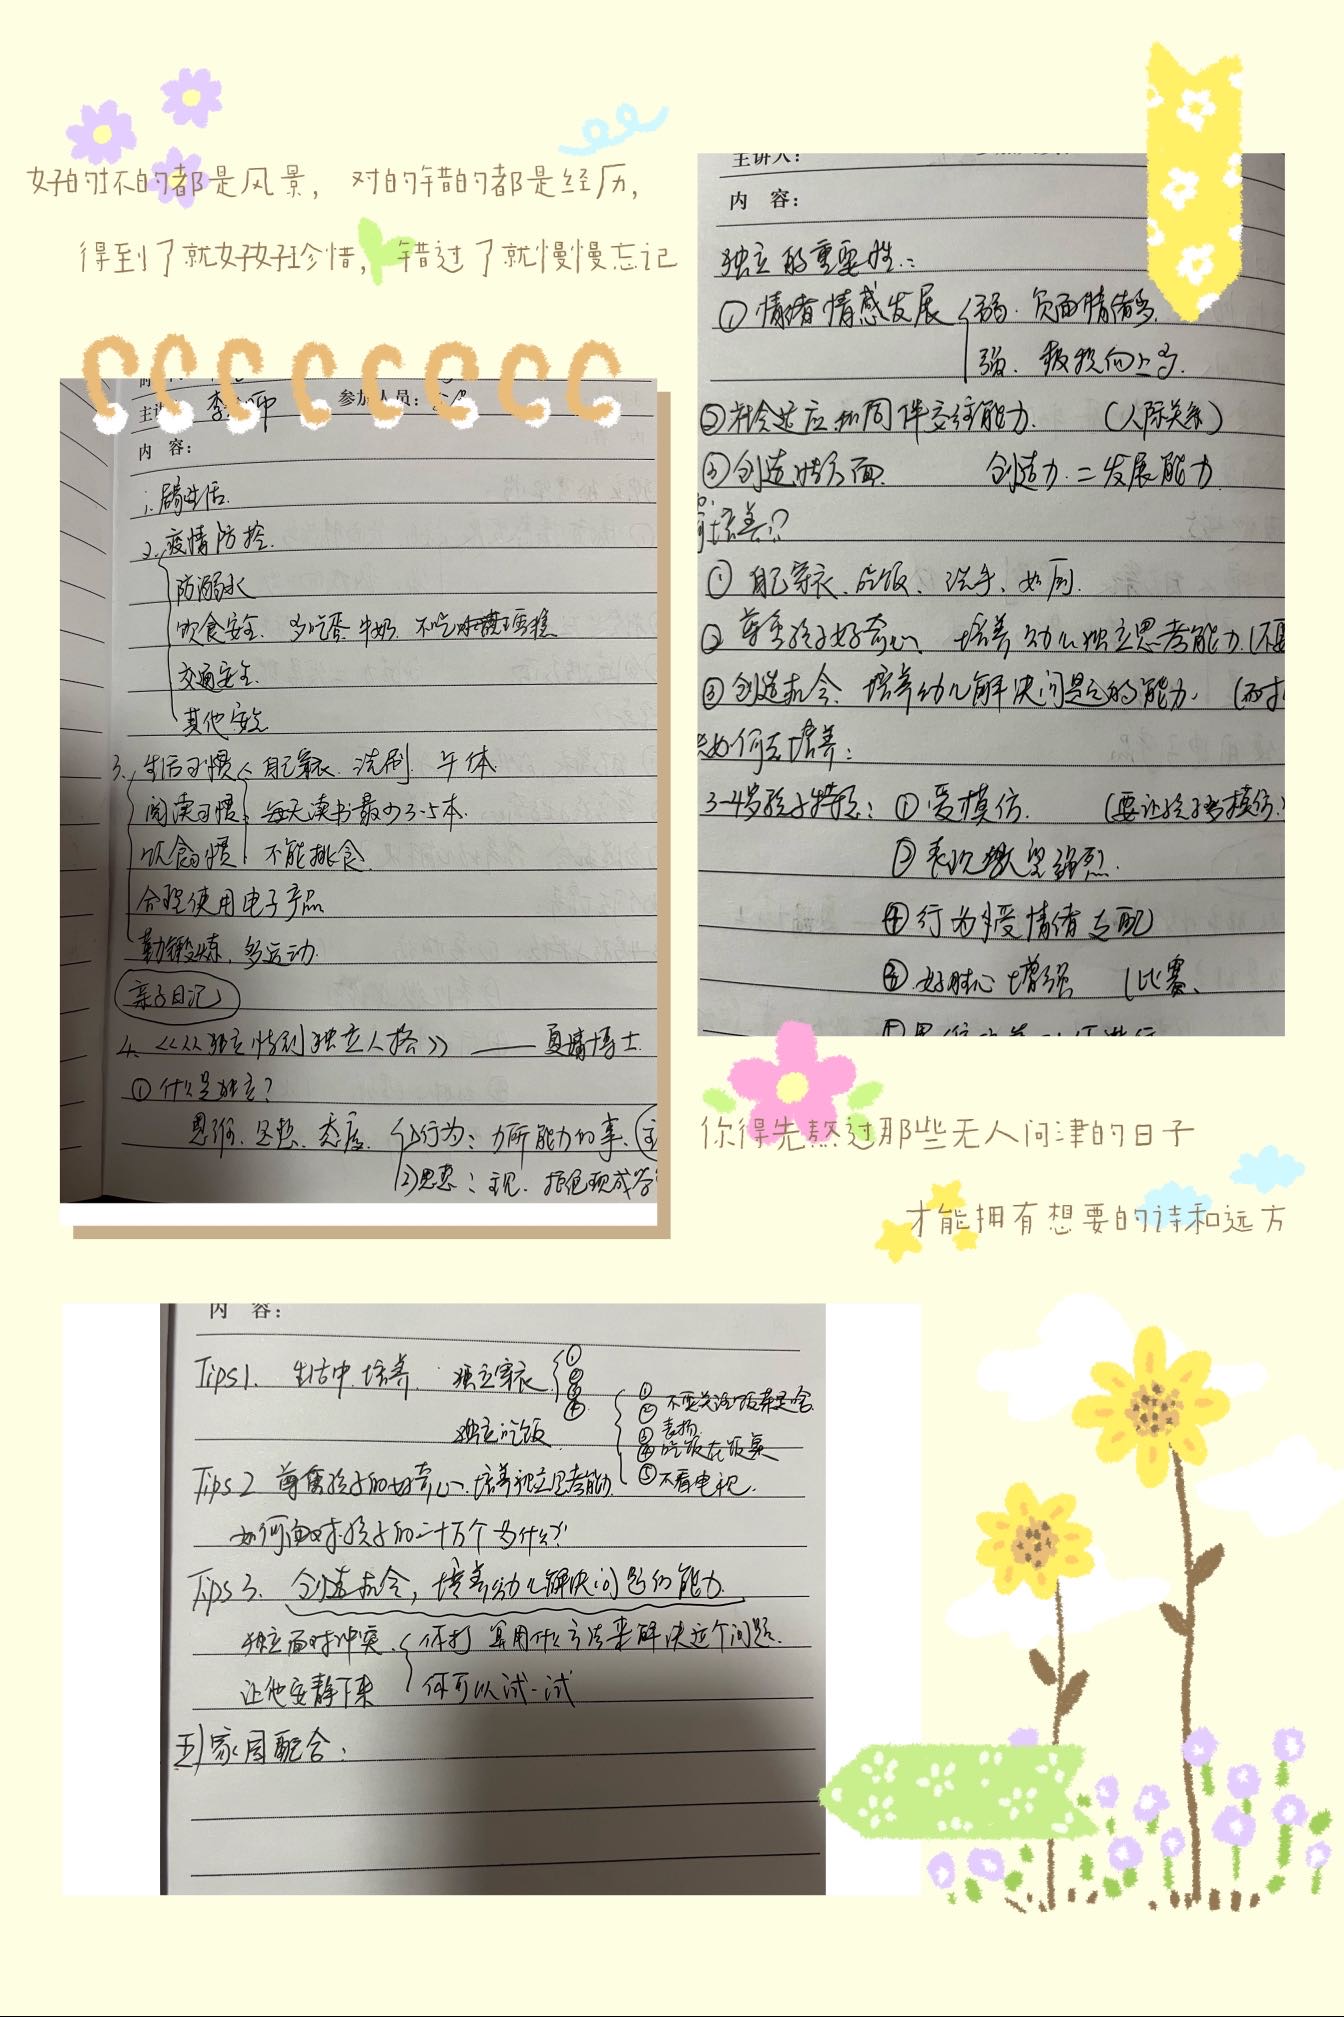 好的坏的都是风景， 对的错的都是经历，
得到了就好好珍惜，错过了就慢慢忘记
参加人员：
内 容：
1.居家生活.
2.疫情防控.
防溺水
饮食安全. 多吃蛋.牛奶. 不吃
交通安全.
其他安全
3.生活习惯 自己穿衣. 洗刷. 午休.
阅读习惯 每天读书最少3-5本.
饮食习惯 不能挑食.
合理使用电子产品
勤锻炼, 多运动.
亲子日记
4. 《从独立性到独立人格》——夏婧博士
①什么是独立?
思维. 态度. ①行为: 力所能力的事.
②思想: 主见. 拒绝现成
主讲人：
内 容：
独立的重要性:
①情绪情感发展 弱. 负面情绪多.
强. 积极向上多.
②社会适应和同伴交往能力. (人际关系)
③创造性方面. 创造力=发展能力
培养?
① 自己穿衣、吃饭、洗手、如厕.
② 尊重孩子好奇心、培养幼儿独立思考能力.(不要
③创造机会、培养幼儿解决问题的能力. (面对
如何去培养:
3-4岁孩子特点: ①爱模仿. (要让孩子多模仿.)
②表现欲望强烈.
④行为受情绪支配
⑤.好胜心增强 (比赛、
你得先熬过那些无人问津的日子
才能拥有想要的诗和远方
内 容：
Tips1. 生活中.培养. 独立穿衣 ① ② ③ ④
独立吃饭 ①
② 不要关注饭菜是否
③ 表扬
④ 吃饭在饭桌
⑤ 不看电视.
Tips2 尊重孩子的好奇心、培养独立思考能力.
如何面对孩子的二十万个为什么?
Tips3. 创造机会, 培养幼儿解决问题的能力.
独立面对冲突. 你打算用什么方法来解决这个问题.
让他安静下来 你可以试一试
五)家园配合: